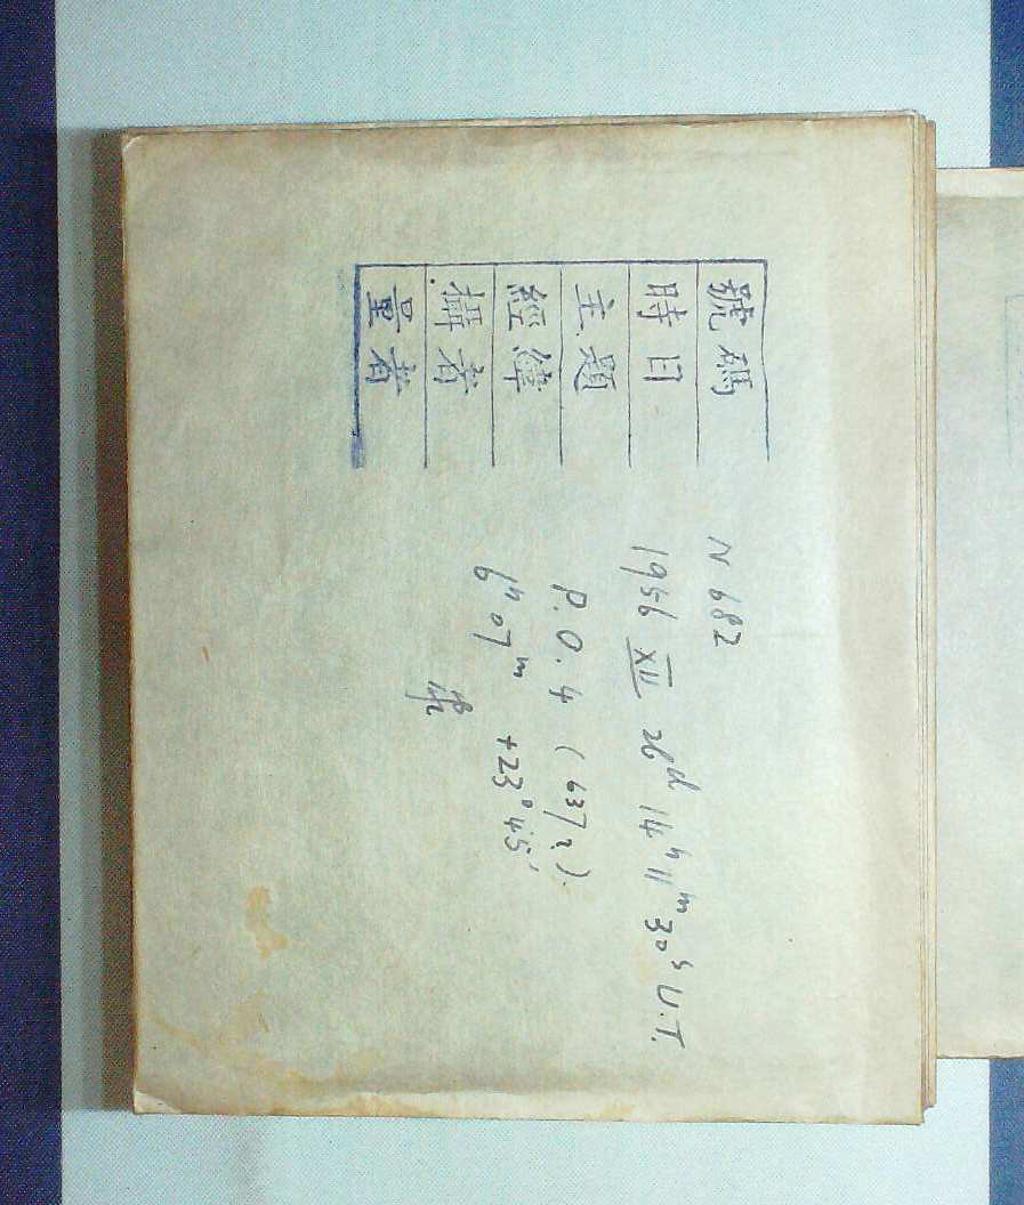 號碼 N 682
時日 1956 XII 26d 14h 11m 30s U.T.
主題 P.O. 4 (637?)
經緯 6h 07m +23° 45'
攝者
量者